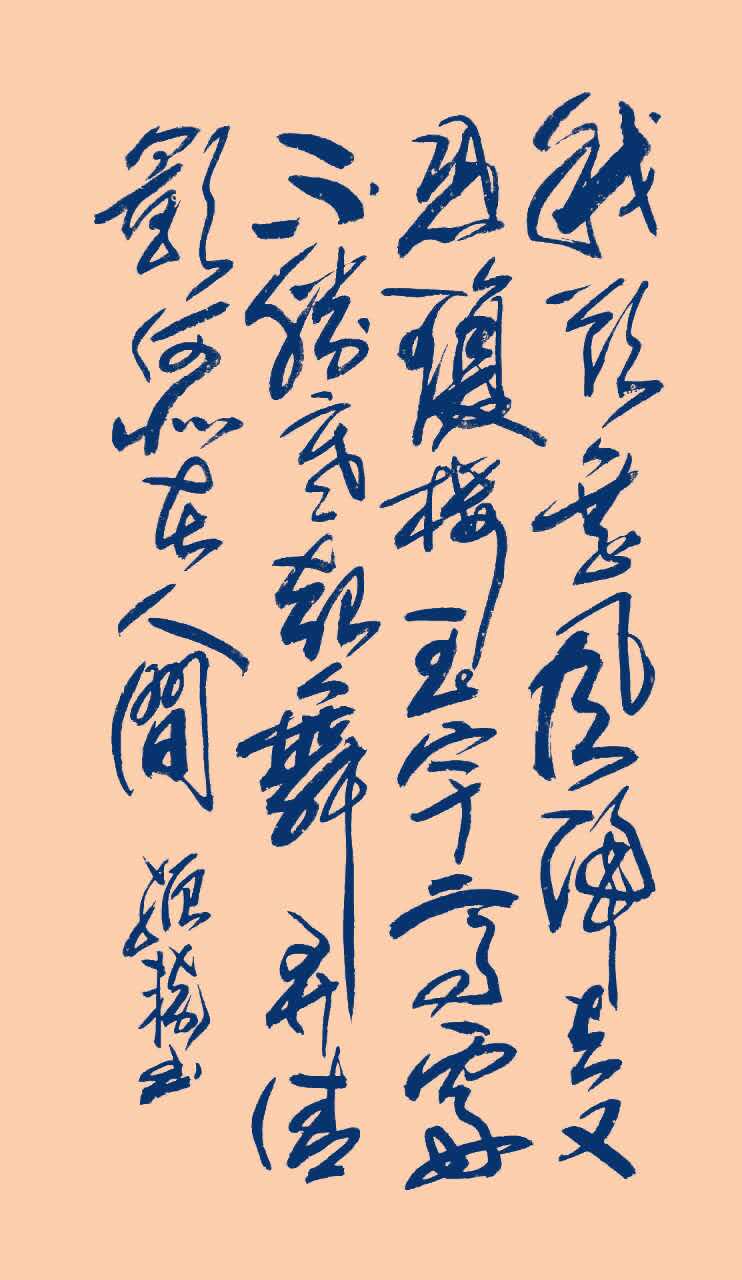 我欲乘風歸去又
恐瓊樓玉宇高處
不勝寒起舞弄清
影何似在人間
书